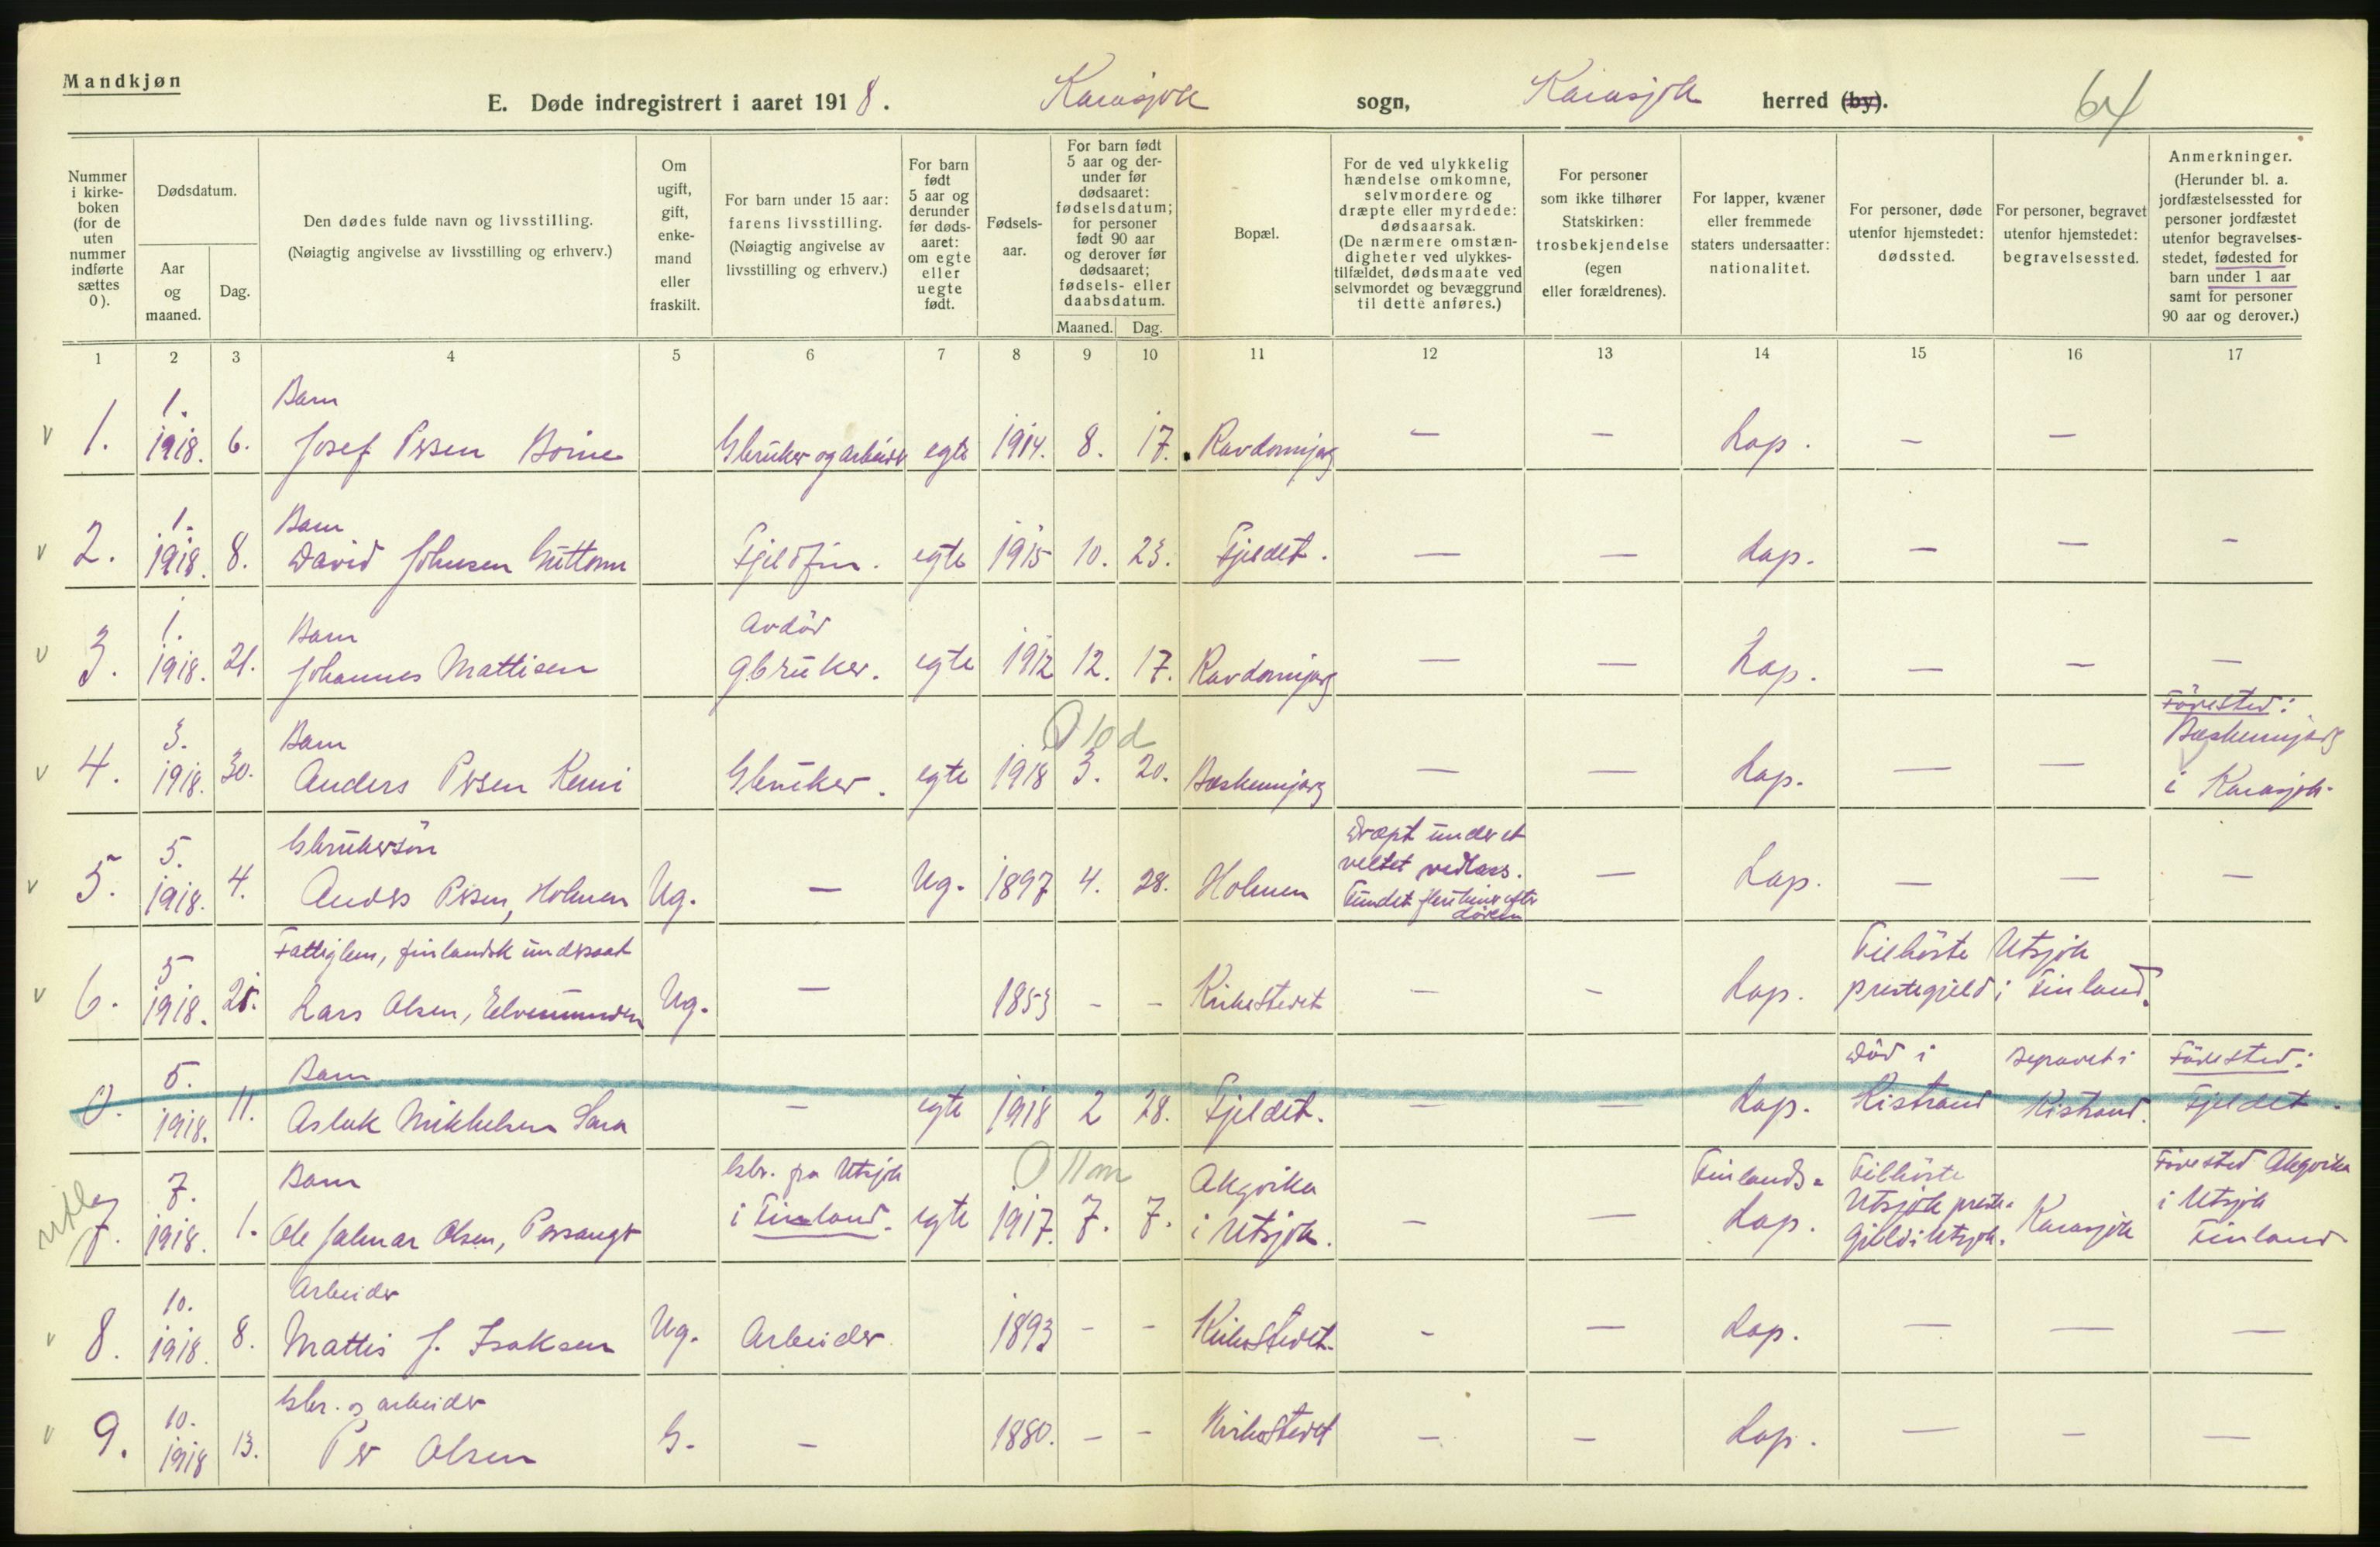 Mandkjøn
E. Døde indregistrert i aaret 1918. Karasjok sogn, Karasjok herred (by). 64
Nummer i kirke-boken (for de uten nummer indførte sættes 0).
Dødsdatum.
Aar og maaned.
Dag.
Den dødes fulde navn og livsstilling.
(Nøiagtig angivelse av livsstilling og erhverv.)
Om ugift, gift, enke-mand eller fraskilt.
For barn under 15 aar: farens livsstilling.
(Nøiagtig angivelse av livsstilling og erhverv.)
For barn født 5 aar og derunder før døds-aaret: om egte eller uegte født.
Fødsels-aar.
For barn født 5 aar og der-under før dødsaaret: fødselsdatum; for personer født 90 aar og derover før dødsaaret; fødsels- eller daabsdatum.
Maaned. Dag.
Bopæl.
For de ved ulykkelig hændelse omkomne, selvmordere og dræpte eller myrdede: dødsaarsak.
(De nærmere omstæn-digheter ved ulykkes-tilfældet, dødsmaate ved selvmordet og bevæggrund til dette anføres.)
For personer som ikke tilhører Statskirken: trosbekjendelse (egen eller forældrenes).
For lapper, kvæner eller fremmede staters undersaatter: nationalitet.
For personer, døde utenfor hjemstedet: dødssted.
For personer, begravet utenfor hjemstedet: begravelsessted.
Anmerkninger.
(Herunder bl. a. jordfæstelsessted for personer jordfæstet utenfor begravelses-stedet, fødested for barn under 1 aar samt for personer 90 aar og derover.)
1 2 3 4 5 6 7 8 9 10 11 12 13 14 15 16 17
v 1. 1. 1918. 6. Barn
Josef Persen Boine Gbruker og arbeider egte 1914. 8. 17. Ravdomjarg — — Lap. — —
v 2. 1. 1918. 8. Barn
David Johnsen Guttorm Fjeldfin. egte 1915 10. 23. Fjeldet. — — Lap. — — —
v 3. 1. 1918. 21. Barn
Johannes Mattisen Avdöd gbruker. egte 1912 12. 17. Ravdomjarg — — Lap. — — —
v 4. 3. 1918. 30. Barn
Anders Persen Kemi Gbruker. egte 1918 3. 20. 0 10 d — — Lap. — — Födested: i Karasjok.
v 5. 5. 1918. 4. Gbrukersön
Anders Persen, Holmen Ug. — Ug. 1897 4. 28. Holmen Dræpt under et veltet vedlass. Fundet efter döden — Lap. — — —
v 6. 5 1918. 25. Fattiglem, finlandsk undersaat
Lars Olsen, Elvemunden Ug. — 1853 - - Kirkestedet — - Lap. Tilhörte Utsjok prestegjeld i Finland.
0. 5. 1918. 11. Barn
Aslak Mikkelsen Sara — egte 1918 2 28. Fjeldet. — — Lap. Död i Kistrand Begravet i Kistrand. Födested: Fjeldet.
7. 7. 1918. 1. Barn
Ole Jalmar Olsen, Porsanger Gbr. fra Utsjok i Finland. egte 1917. 7. 7. 0 11 m i Utsjok. — — Finlands-Lap. Tilhörte Utsjok preste-gjeld i Utsjok. Karasjok Födested i Utsjok Finland
v 8. 10. 1918. 8. Arbeider
Mattis J. Isaksen Ug. Arbeider 1893 - - Kirkestedet. - — Lap. — — —
v 9. 10. 1918 13. Gbr. og arbeider
Per Olsen G. — 1880. - - Kirkestedet — — Lap. — — —